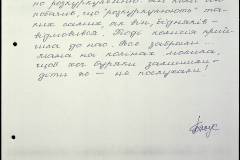 по розкуркуленню. Як коли він
побачив, що "розкуркулюють" та-
ких самих, як він, бідняків -
відмовився. Тоді комісія прий-
шла до нас. Все забрали...
мама на колінах молила,
щоб хоч буряки залишили -
діти ж - не послухали!